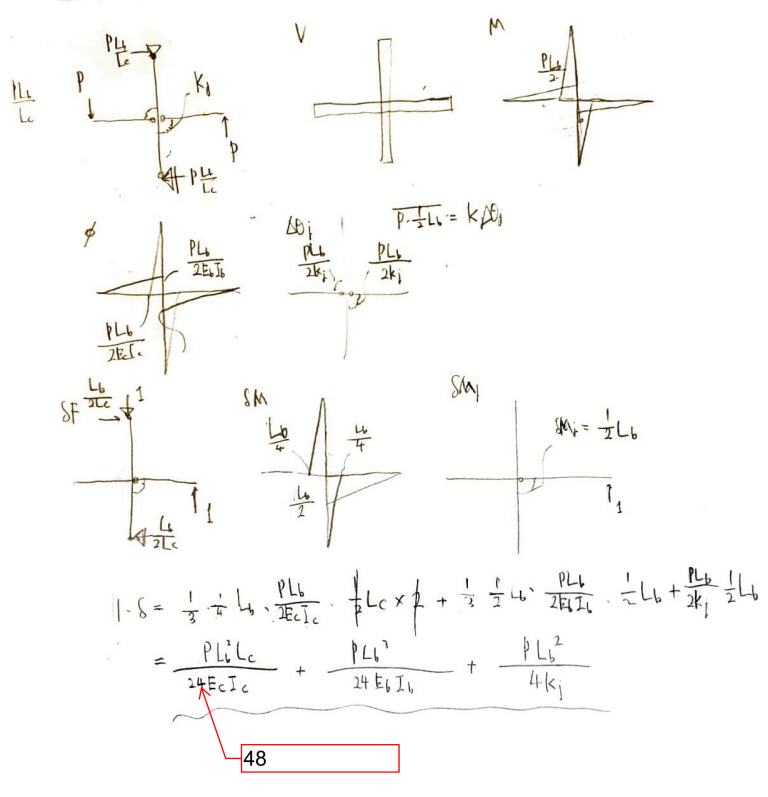 PLb/Lc
PLb/Lc
P
Kj
P
PLb/Lc
V
M
PLb/2
ϕ
PLb/2EbIb
PLb/2EcIc
Δθj
PLb/2kj
PLb/2kj
P·½Lb = KjΔθj
δF
Lb/2Lc
1
1
Lb/2Lc
δM
Lb/4
Lb/4
Lb/2
δMj
δMj = ½Lb
1
1·δ = 1/3 · 1/4 Lb · PLb/2EcIc · 1/2 Lc × 2 + 1/3 · 1/2 Lb · PLb/2EbIb · 1/2 Lb + PLb/2kj 1/2 Lb
= PLb²Lc/24EcIc + PLb³/24EbIb + PLb²/4kj
48